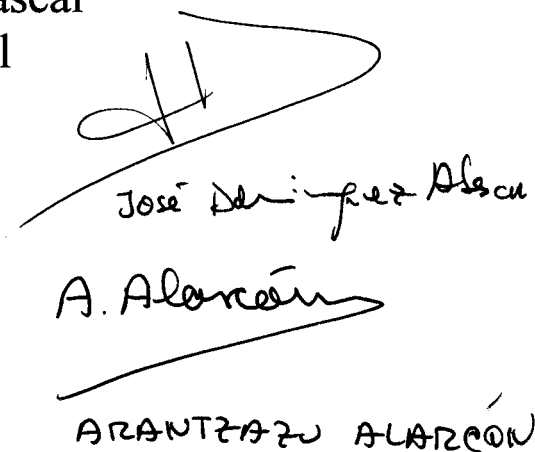 ascal
l
José Domínguez Abascal
A. Alarcón
ARANTZAZU ALARCÓN